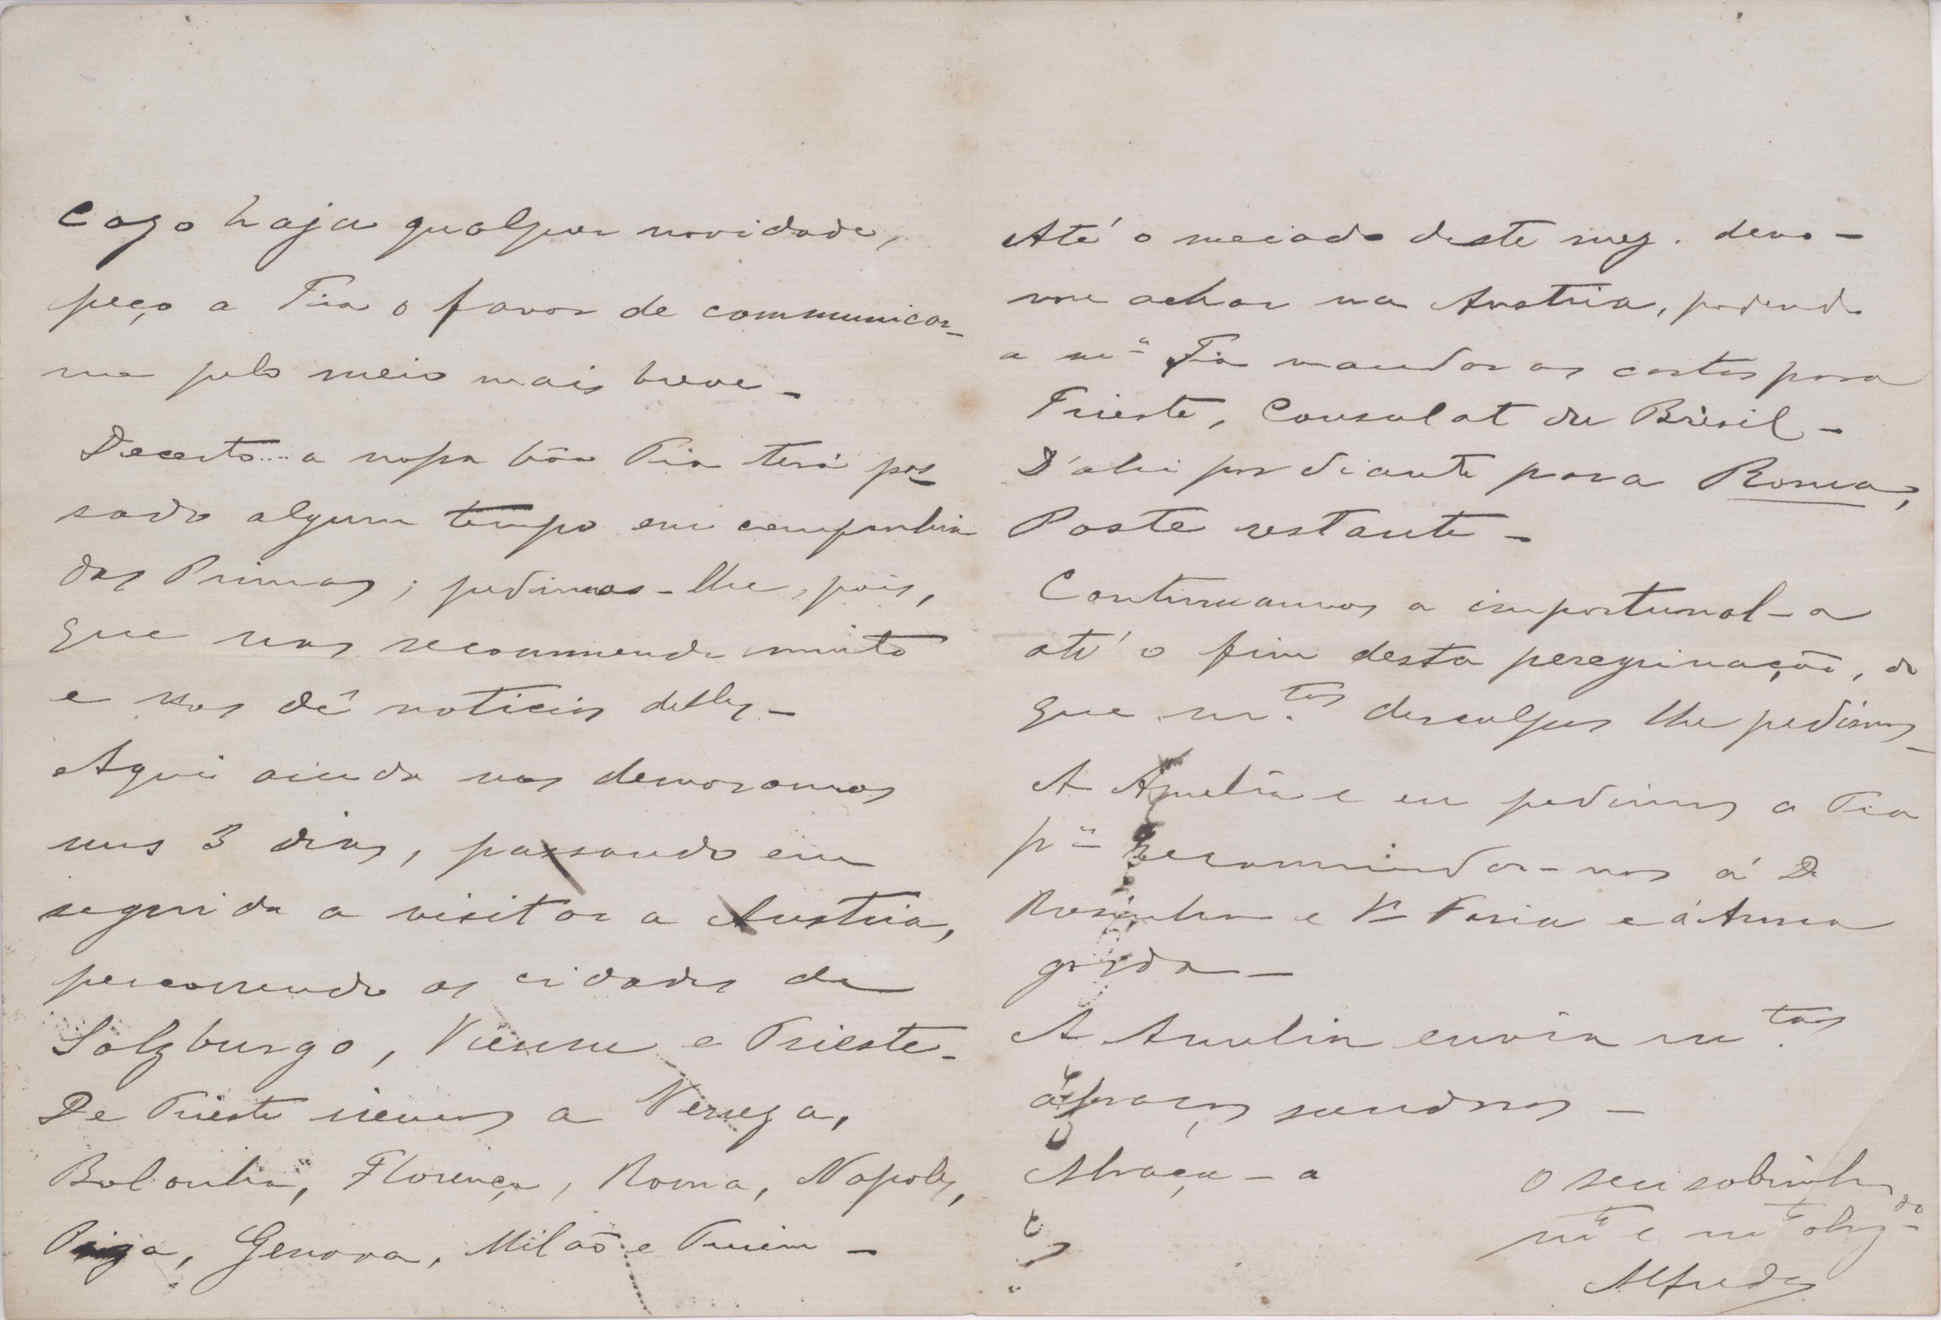 Cazo haja qualquer novidade,
peço a Tia o favor de communicar-
me pelo meio mais breve -
Decerto... a nossa bôa Tia terá pas-
sado algum tempo em companhia
das Primas; pedimos-lhe, pois,
que nos recommende muito
e nos dê noticias dellas -
Aqui ainda nos demoramos
uns 3 dias, passando em
seguida a visitar a Austria,
percorrendo as cidades de
Salzburgo, Vienna e Trieste -
De Trieste iremos a Veneza,
Bolonha, Florença, Roma, Napoles,
Piza, Genova, Milão e Turim -
Até o meiado deste mez. devo -
me achar na Austria, podendo
a mª Tia mandar as cartas para
Trieste, Consulat du Brèsil -
D'ahi por diante para Roma,
Poste restante -
Continuamos a importunal-a
até o fim desta peregrinação, do
que m.tas desculpas lhe pedimos -
A Amelia e eu pedimos a Tia
pª recommendar-nos á D
Rosinha e Faria e á Anna
A Amelia envia m.tas
abraços saudosos -
Abraça-a
O seu sobrinho
mto e mto obrg.do
Alfredo